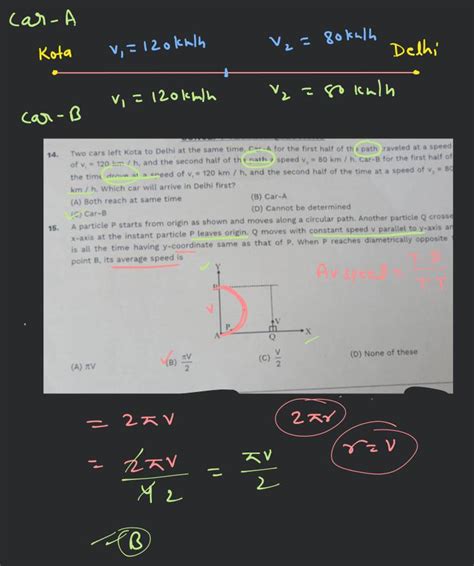 Car-A
Kota v₁ = 120km/h v₂ = 80km/h Delhi
v₁ = 120km/h v₂ = 80 km/h
Car-B
14. Two cars left Kota to Delhi at the same time. Car-A for the first half of the path traveled at a speed
of v₁ = 120 km / h, and the second half of the path a speed v₂ = 80 km / h. Car-B for the first half of
the time drove at a speed of v₁ = 120 km / h, and the second half of the time at a speed of v₂ = 80
km / h. Which car will arrive in Delhi first?
(A) Both reach at same time (B) Car-A
(C) Car-B (D) Cannot be determined
15. A particle P starts from origin as shown and moves along a circular path. Another particle Q crosse
x-axis at the instant particle P leaves origin. Q moves with constant speed v parallel to y-axis an
is all the time having y-coordinate same as that of P. When P reaches diametrically opposite
point B, its average speed is
Y
B
Av speed = T.D / T.T
V
P
V
A Q X
(A) πV (B) πV/2 (C) V/2 (D) None of these
= 2πv 2πr
r=v
= 2πv / 4 2 = πv / 2
B